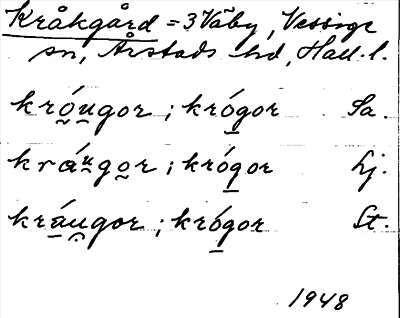 Kråkgård = 3 Väby, Vessige
sn, Årstads hd, Hall. l.
kró̯u̯gor ; kró̠gor Sa.
kráu̯go̯r ; króg̠or Lj.
krá̠u̯gor ; króg̠or St.
1948